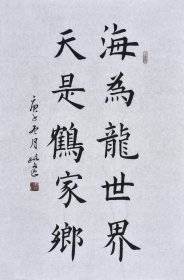 海為龍世界
天是鶴家鄉
庚子冬月